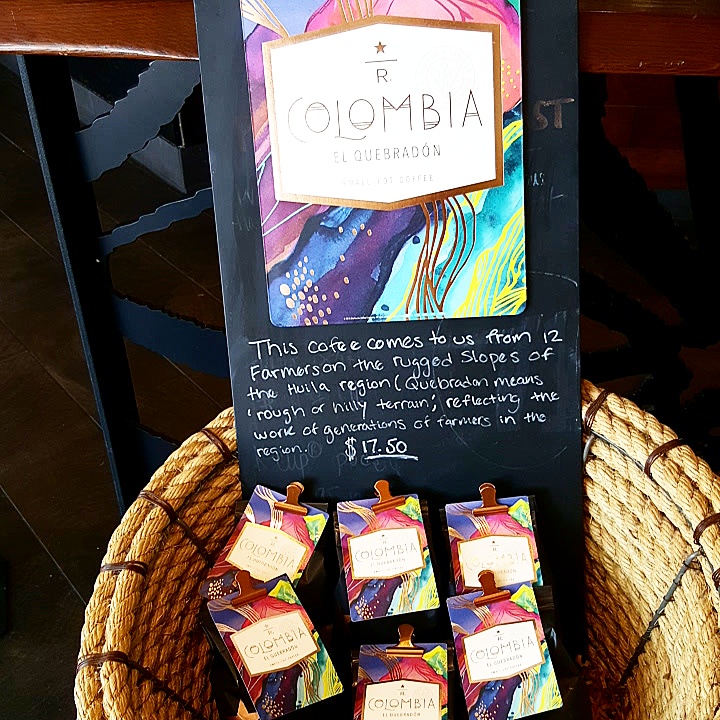 R.
COLOMBIA
EL QUEBRADÓN
SMALL LOT COFFEE
ST
This cofee comes to us from 12
Farmers on the rugged Slopes of
the Huila region (Quebradon means
'rough or hilly terrain', reflecting the
work of generations of farmers in the
region. $17.50
R.
COLOMBIA
EL QUEBRADÓN
COLOMBIA
EL QUEBRADÓN
COLOMBIA
R.
COLOMBIA
EL QUEBRADÓN
SMALL LOT COFFEE
R.
COLOMBIA
EL QUEBRADÓN
SMALL LOT COFFEE
R.
COLOMBIA
EL QUEBRADÓN